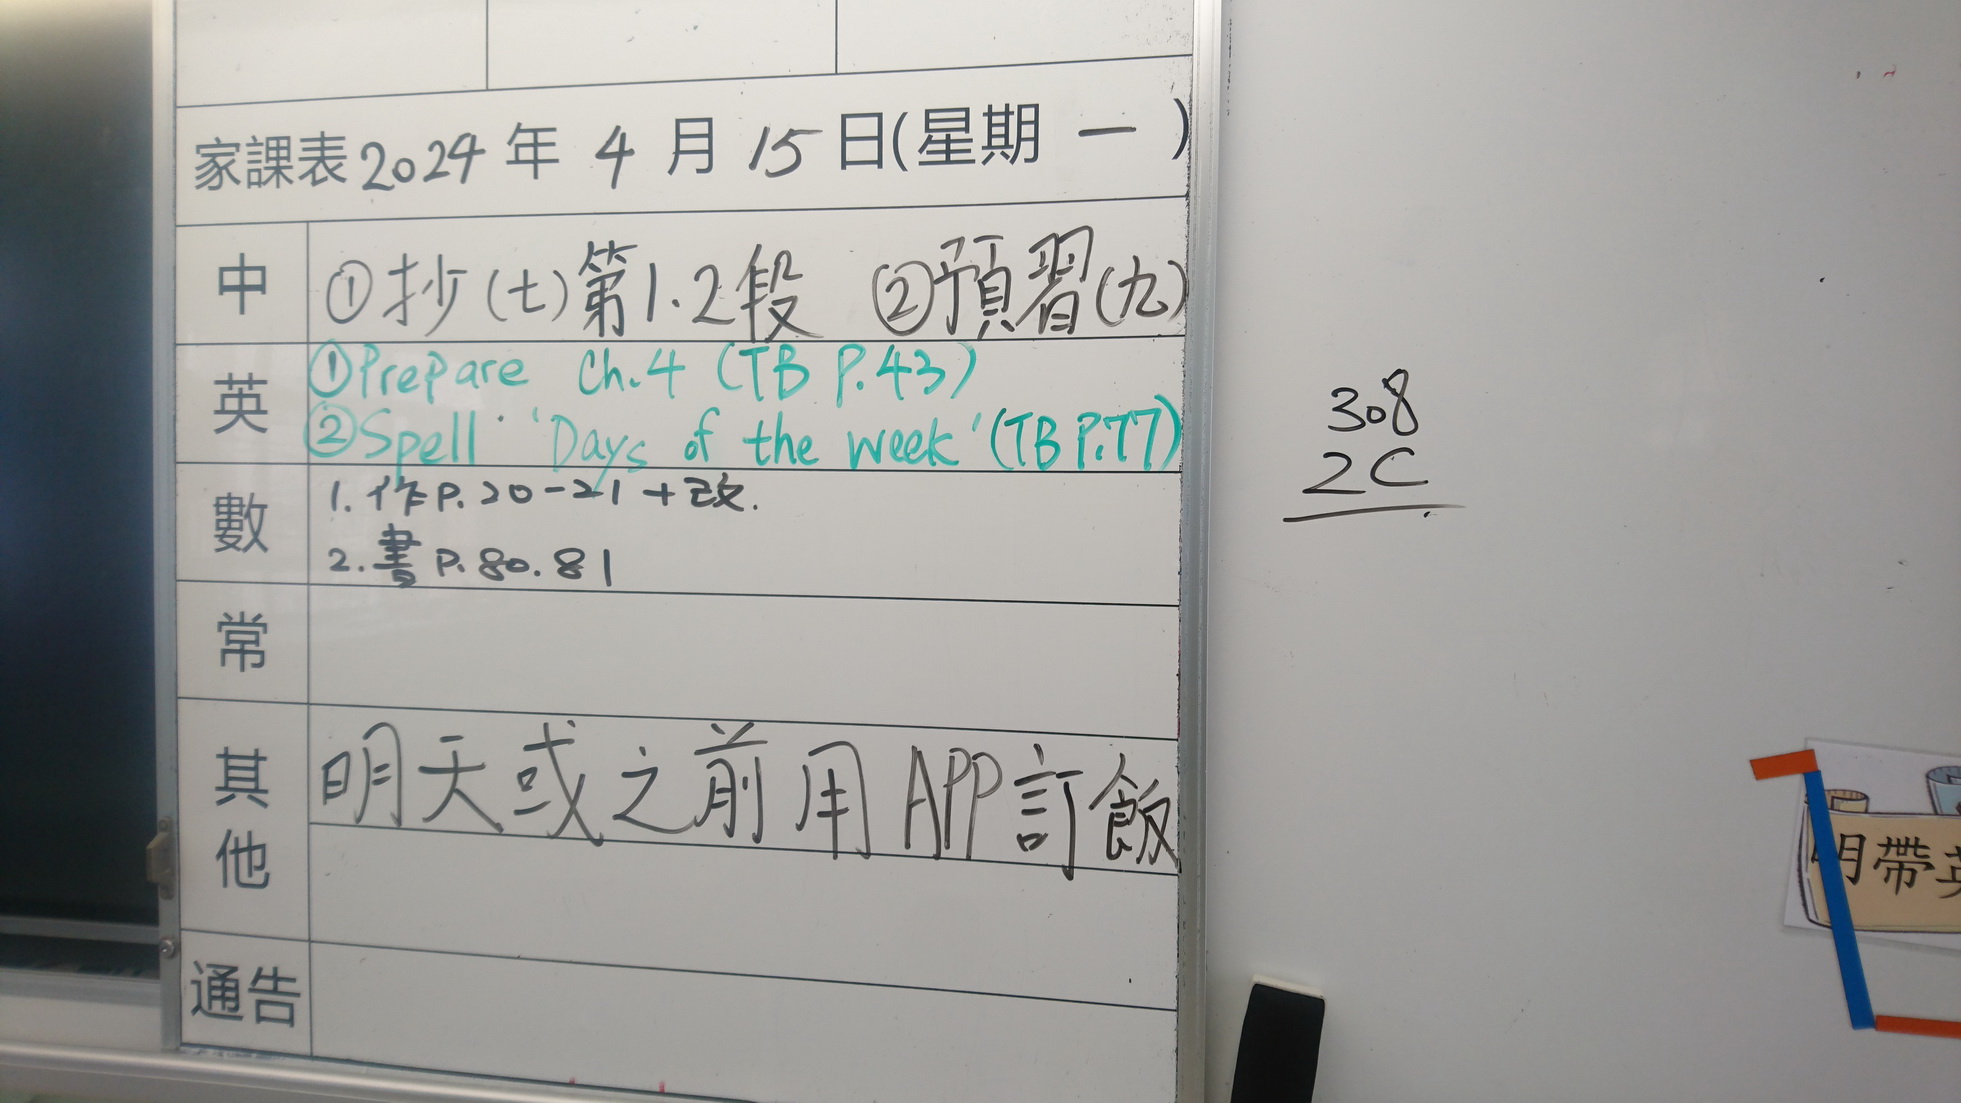 家課表 2024 年 4 月 15 日(星期 一 )
中 ①抄(七)第1.2段 ②預習(九)
英 ①Prepare Ch.4 (TB P.43)
②Spell 'Days of the week' (TB P.77)
數 1. 作P.20-21 + 改.
2. 書 P.80.81
常
其他 明天或之前用APP訂飯
通告
308
2C
明帶英